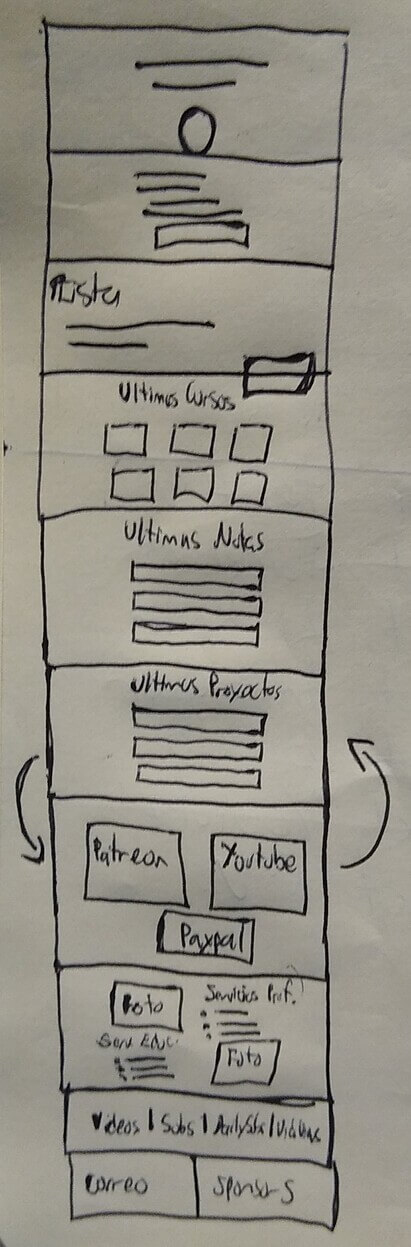 Ultimos Cursos
Ultimas Notas
Ultimos Proyectos
Patreon
Youtube
Paypal
Foto
Servicios Prof.
Serv Educ.
Foto
Videos | Subs |
Correo
Sponsors